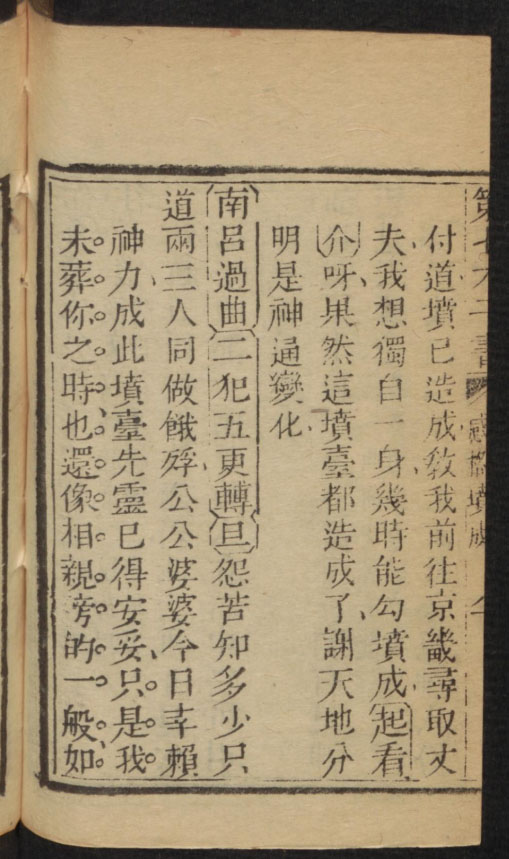 第七才子書 感格墳成
付道墳已造成教我前往京畿尋取丈
夫我想獨自一身幾時能勾墳成起看
介呀果然這墳臺都造成了謝天地分
明是神通變化
南呂過曲二犯五更轉旦怨苦知多少只
道兩三人同做餓殍公公婆婆今日幸賴
神力成此墳臺先靈已得安妥只是我
未葬你之時也還像相親旁的一般如